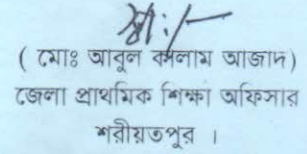 স্বাঃ/-
( মোঃ আবুল কালাম আজাদ )
জেলা প্রাথমিক শিক্ষা অফিসার
শরীয়তপুর ।